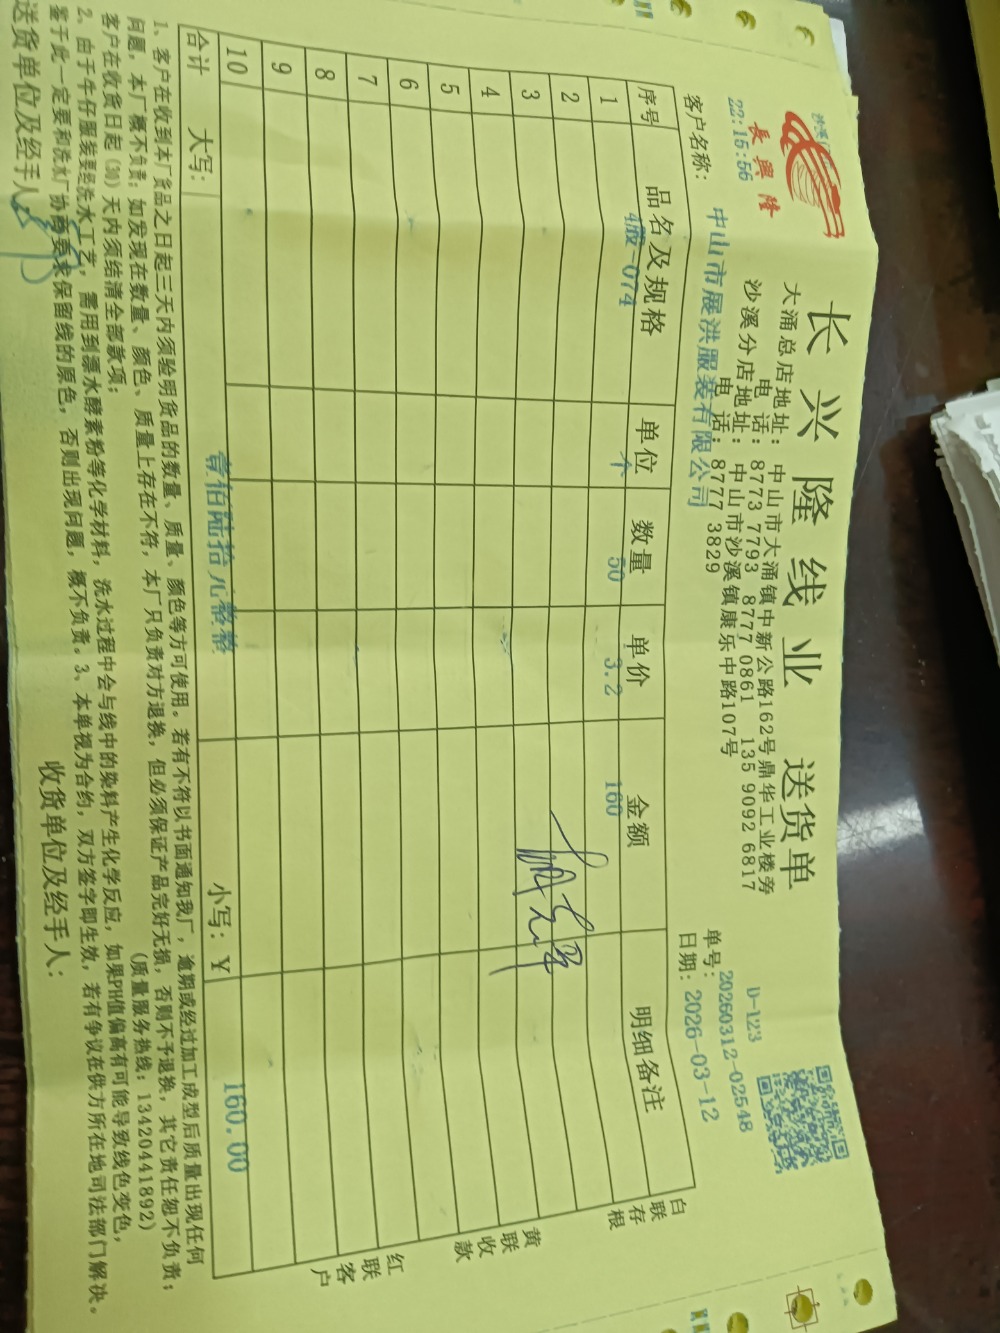 長興隆
22:15:56
长兴隆线业 送货单
大涌总店地址: 中山市大涌镇中新公路162号鼎华工业楼旁
电 话: 8773 7793 8777 0861 135 9092 6817
沙溪分店地址: 中山市沙溪镇康乐中路107号
电 话: 8777 3829
D-123
单号: 20260312-02548
客户名称: 中山市展洪服装有限公司
日期: 2026-03-12
序号 品名及规格 单位 数量 单价 金额 明细备注
1 4股-074 个 50 3.2 160
2
3
4
5
6
7
8
9
10
合计 大写: 壹佰陆拾元整 小写: ¥ 160.00
白联存根
黄联收款
红联客户
1、客户在收到本厂货品之日起三天内须验明货品的数量、质量、颜色等方可使用。若有不符以书面通知我厂，逾期或经过加工成型后质量出现任何
问题，本厂概不负责；如发现在数量、颜色、质量上存在不符，本厂只负责对方退换，但必须保证产品完好无损，否则不予退换，其它责任恕不负责；
客户在收货日起（30）天内须结清全部款项； （质量服务热线：13420441892）
2、由于牛仔服装要经洗水工艺，需用到漂水酵素粉等化学材料，洗水过程中会与线中的染料产生化学反应，如果PH值偏高有可能导致线色变色，
鉴于此一定要和洗水厂协商要求保留线的原色，否则出现问题，概不负责。3、本单视为合约，双方签字即生效，若有争议在供方所在地司法部门解决。
送货单位及经手人: 收货单位及经手人: